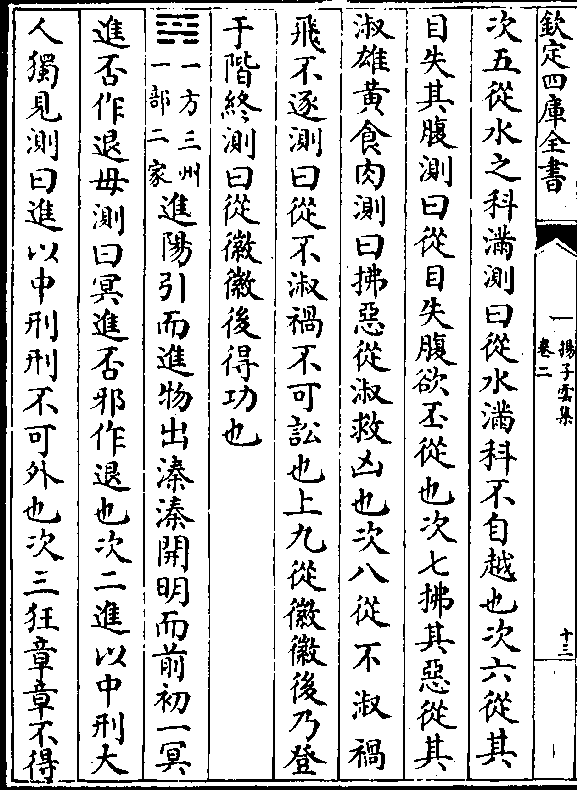 欽定四庫全書
揚子雲集
卷二
十三
次五從水之科滿測曰從水滿科不自越也次六從其
目失其腹測曰從目失腹欲丕從也次七拂其惡從其
淑雄黃食肉測曰拂惡從淑救凶也次八從不淑禍
飛不逐測曰從不淑禍不可訟也上九從徽徽後乃登
于階終測曰從徽徽後得功也
一方三州
一部二家
進陽引而進物出溱溱開明而前初一冥
進否作退毋測曰冥進否邪作退也次二進以中刑大
人獨見測曰進以中刑刑不可外也次三狂章章不得